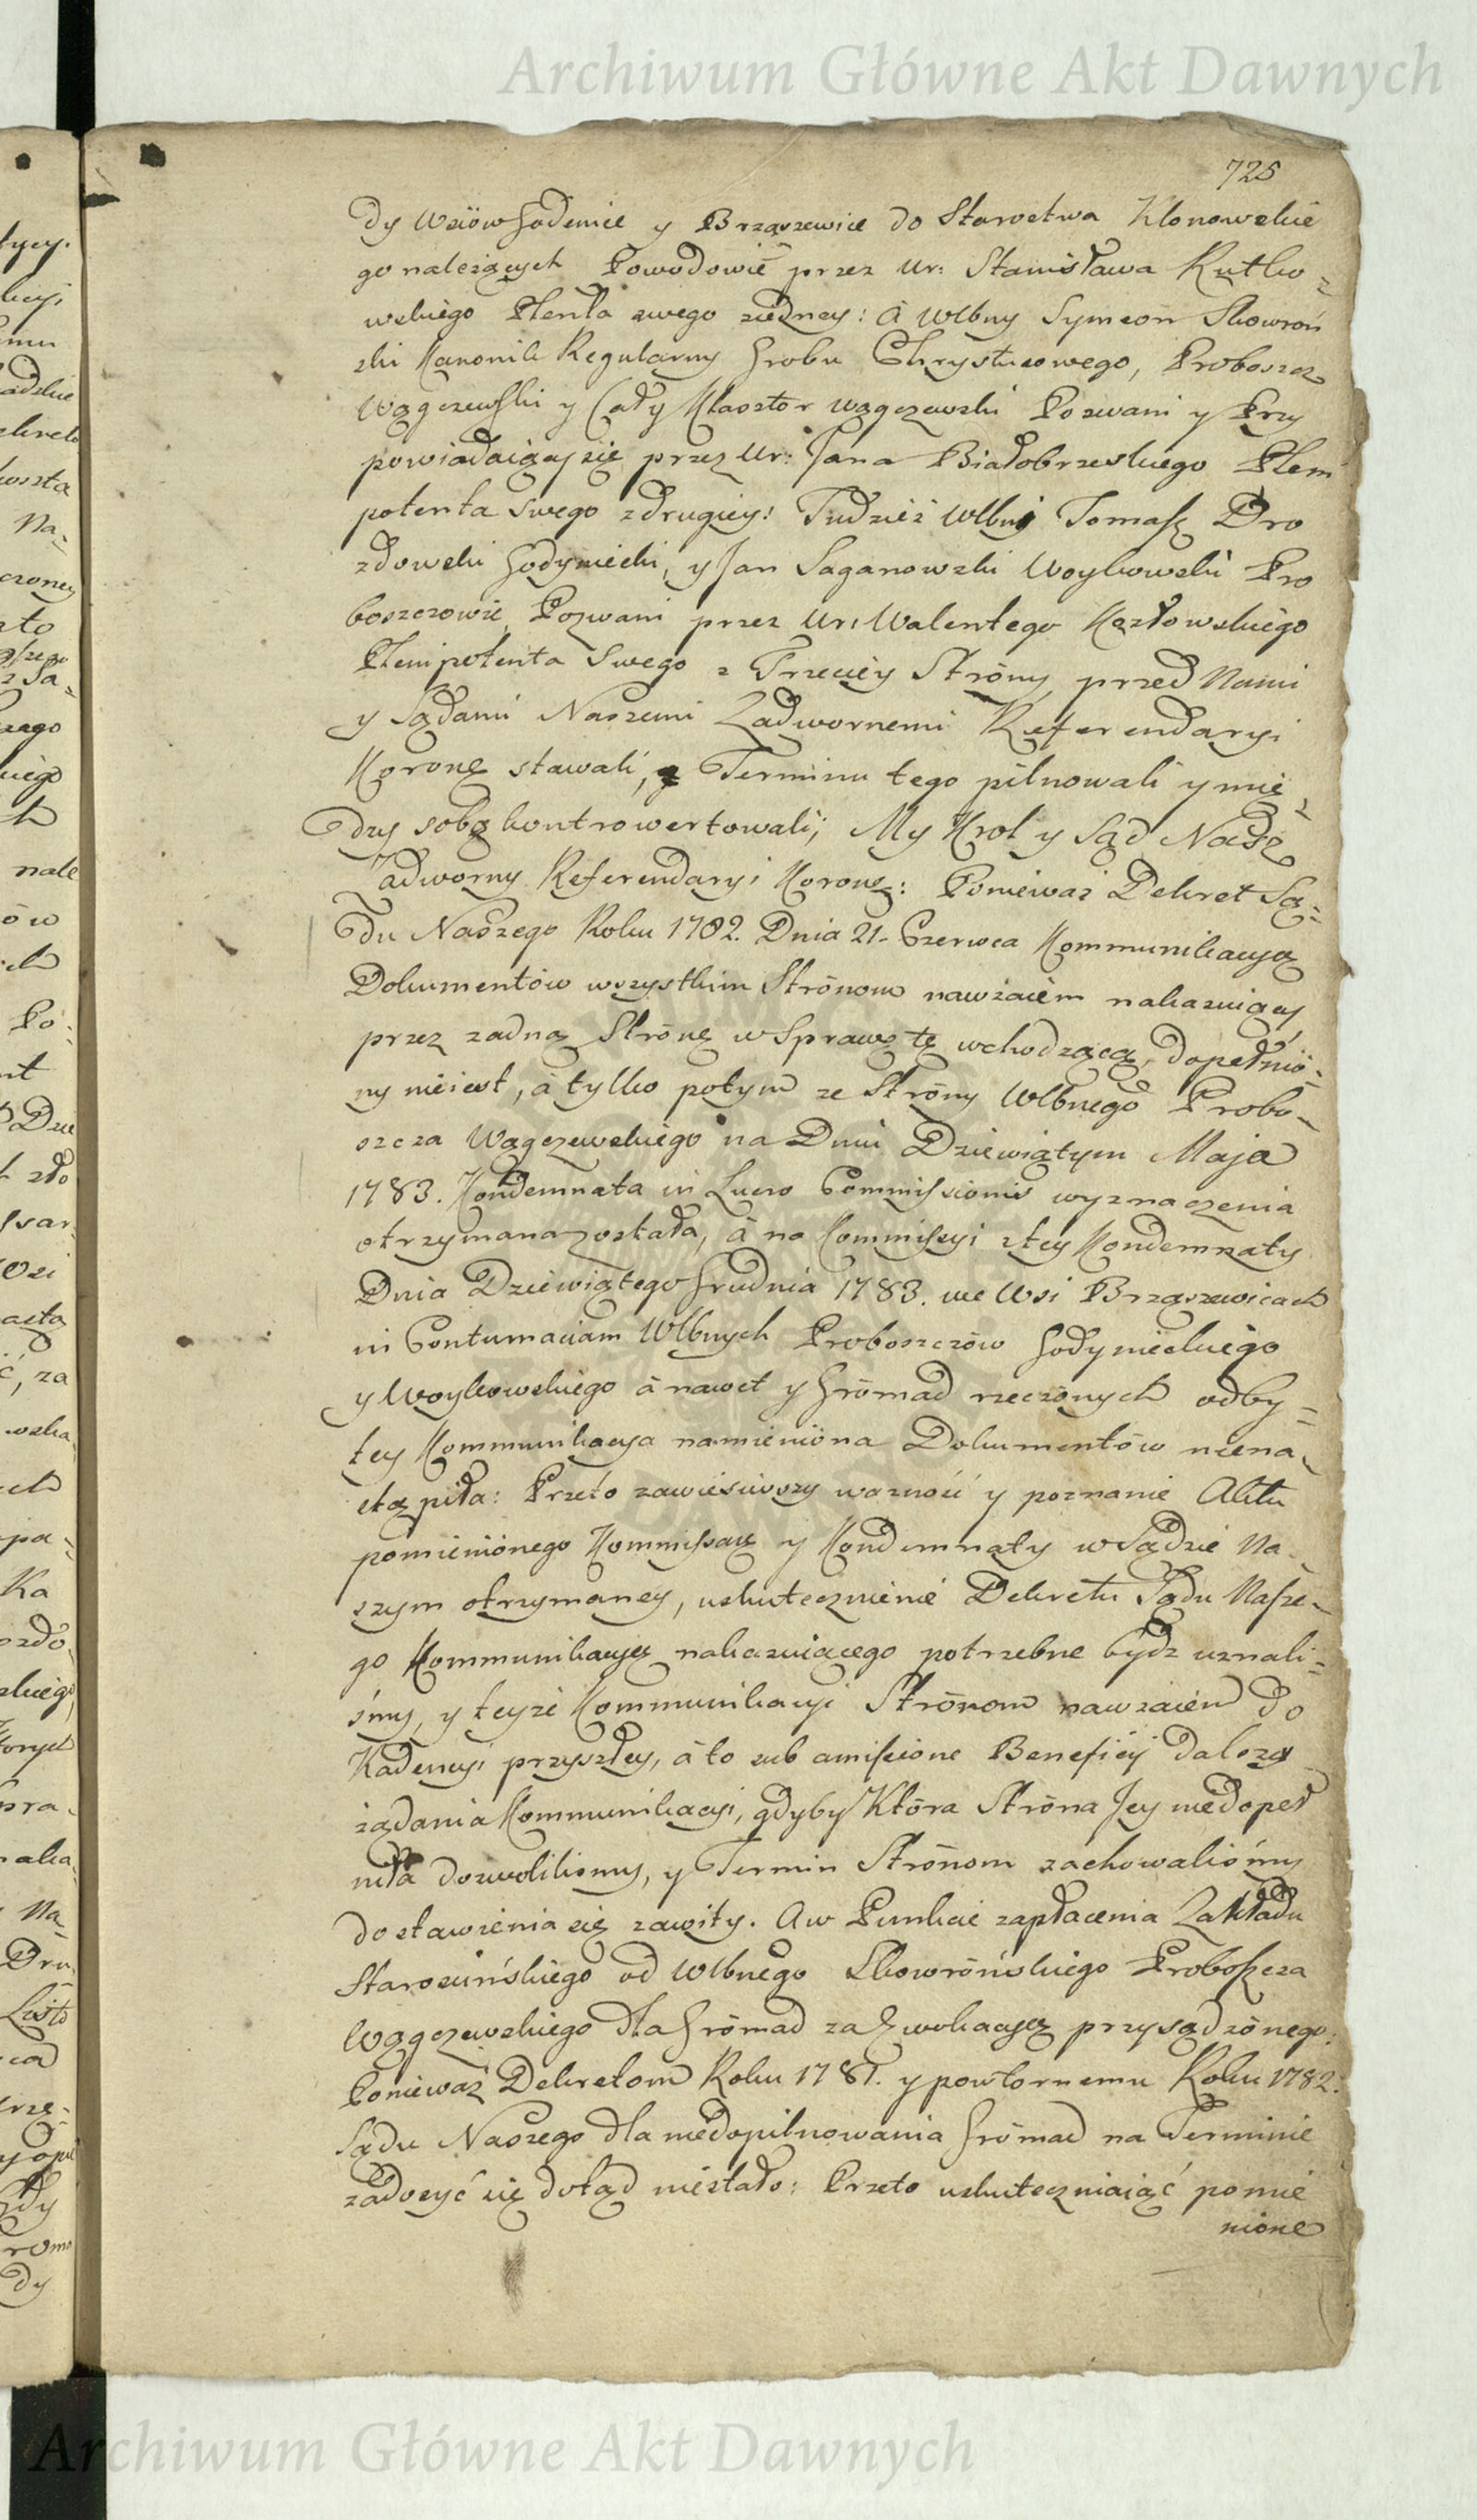 Archiwum Główne Akt Dawnych
725
dy Wsiöw Godenice y Brząszewice do Starostwa Klonowskie
go należących Powodowie przez Ur: Stanisława Rutko-
wskiego Plenta swego ziedney: à Wlbny Symeon Skowroń
ski Kanonik Regularny Grobu Chrystusowego, Proboszcz
Wągczewski y Cały Klasztor wągczewski Pozwani y Przy
powiadaiący się przez Ur: Jana Białobrzeskiego Pleni
potenta swego z drugiey: Tudzież Wlbni Tomasz Dro
zdowski Godyniecki, y Jan Saganowski Woykowski Pro
boszczowie Pozwani przez Ur: Walentego Kozłowskiego
Plenipotenta Swego z Trzeciey Ströny przed Nami
y Sądami Naszemi Zadwornemi Referendaryi
Koronę stawali, Terminu tego pilnowali y mię-
dzy sobą kontrowertowali; My Krol y Sąd Nasz
Zadworny Referendaryi Koronę: Ponieważ Dekret Są-
du Naszego Roku 1782. Dnia 21. Czerwca Kommunikacyą
Dokumentów wszystkim Strönom nawzaiem nakazuiący
przez zadną Strönę w Sprawę tę wchodzącą, dopełniö-
ny nieiest, à tylko potym ze Ströny Wlbnego Probo-
szcza Wągczewskiego na Dniu Dziewiątym Maja
1783. Kondemnata in Lucro Commissionis wyznaczenia
otrzymana została, à na Kommissyi ztey Kondemnaty
Dnia Dziewiątego Grudnia 1783. we Wsi Brząszewicach
in Contumaciam Wlbnych Proboszczöw Godynieckiego
y Woykowskiego à nawet y Grömad rzeczonych odby-
tey Kommunikacya namieniöna Dokumentöw niena-
stąpiła: Przeto zawiesiwszy ważność y poznanie Aktu
pomieniönego Kommissarz y Kondemnaty w Sądzie Na
szym otrzymaney, uskutecznienie Dekretu Sądu Nasze-
go Kommunikacyą nakazuiącego potrzebne bydz uznali-
śmy, y teyże Kommunikacyi Strönom nawzaiem do
Kadencyi przyszłey, à to sub amissione Beneficij dalszego
żądania Kommunikacyi, gdyby Ktöra Ströna Jey niedopeł
niła dozwolilismy, y Termin Strönom zachowaliśmy
do stawienia się zawity. A w Punkcie zapłacenia Zakładu
Starościńskiego od Wlbnego Skowröńskiego Proboszcza
Wągczewskiego dla Grömad za Zwokacyą przysądzönego:
Ponieważ Dekretom Roku 1781. y powtornemu Roku 1782.
Sądu Naszego dla niedopilnowania Grömad na Terminie
zadosyć się dotąd niestało: Przeto uskuteczniaiąć pomie
nione
Archiwum Główne Akt Dawnych